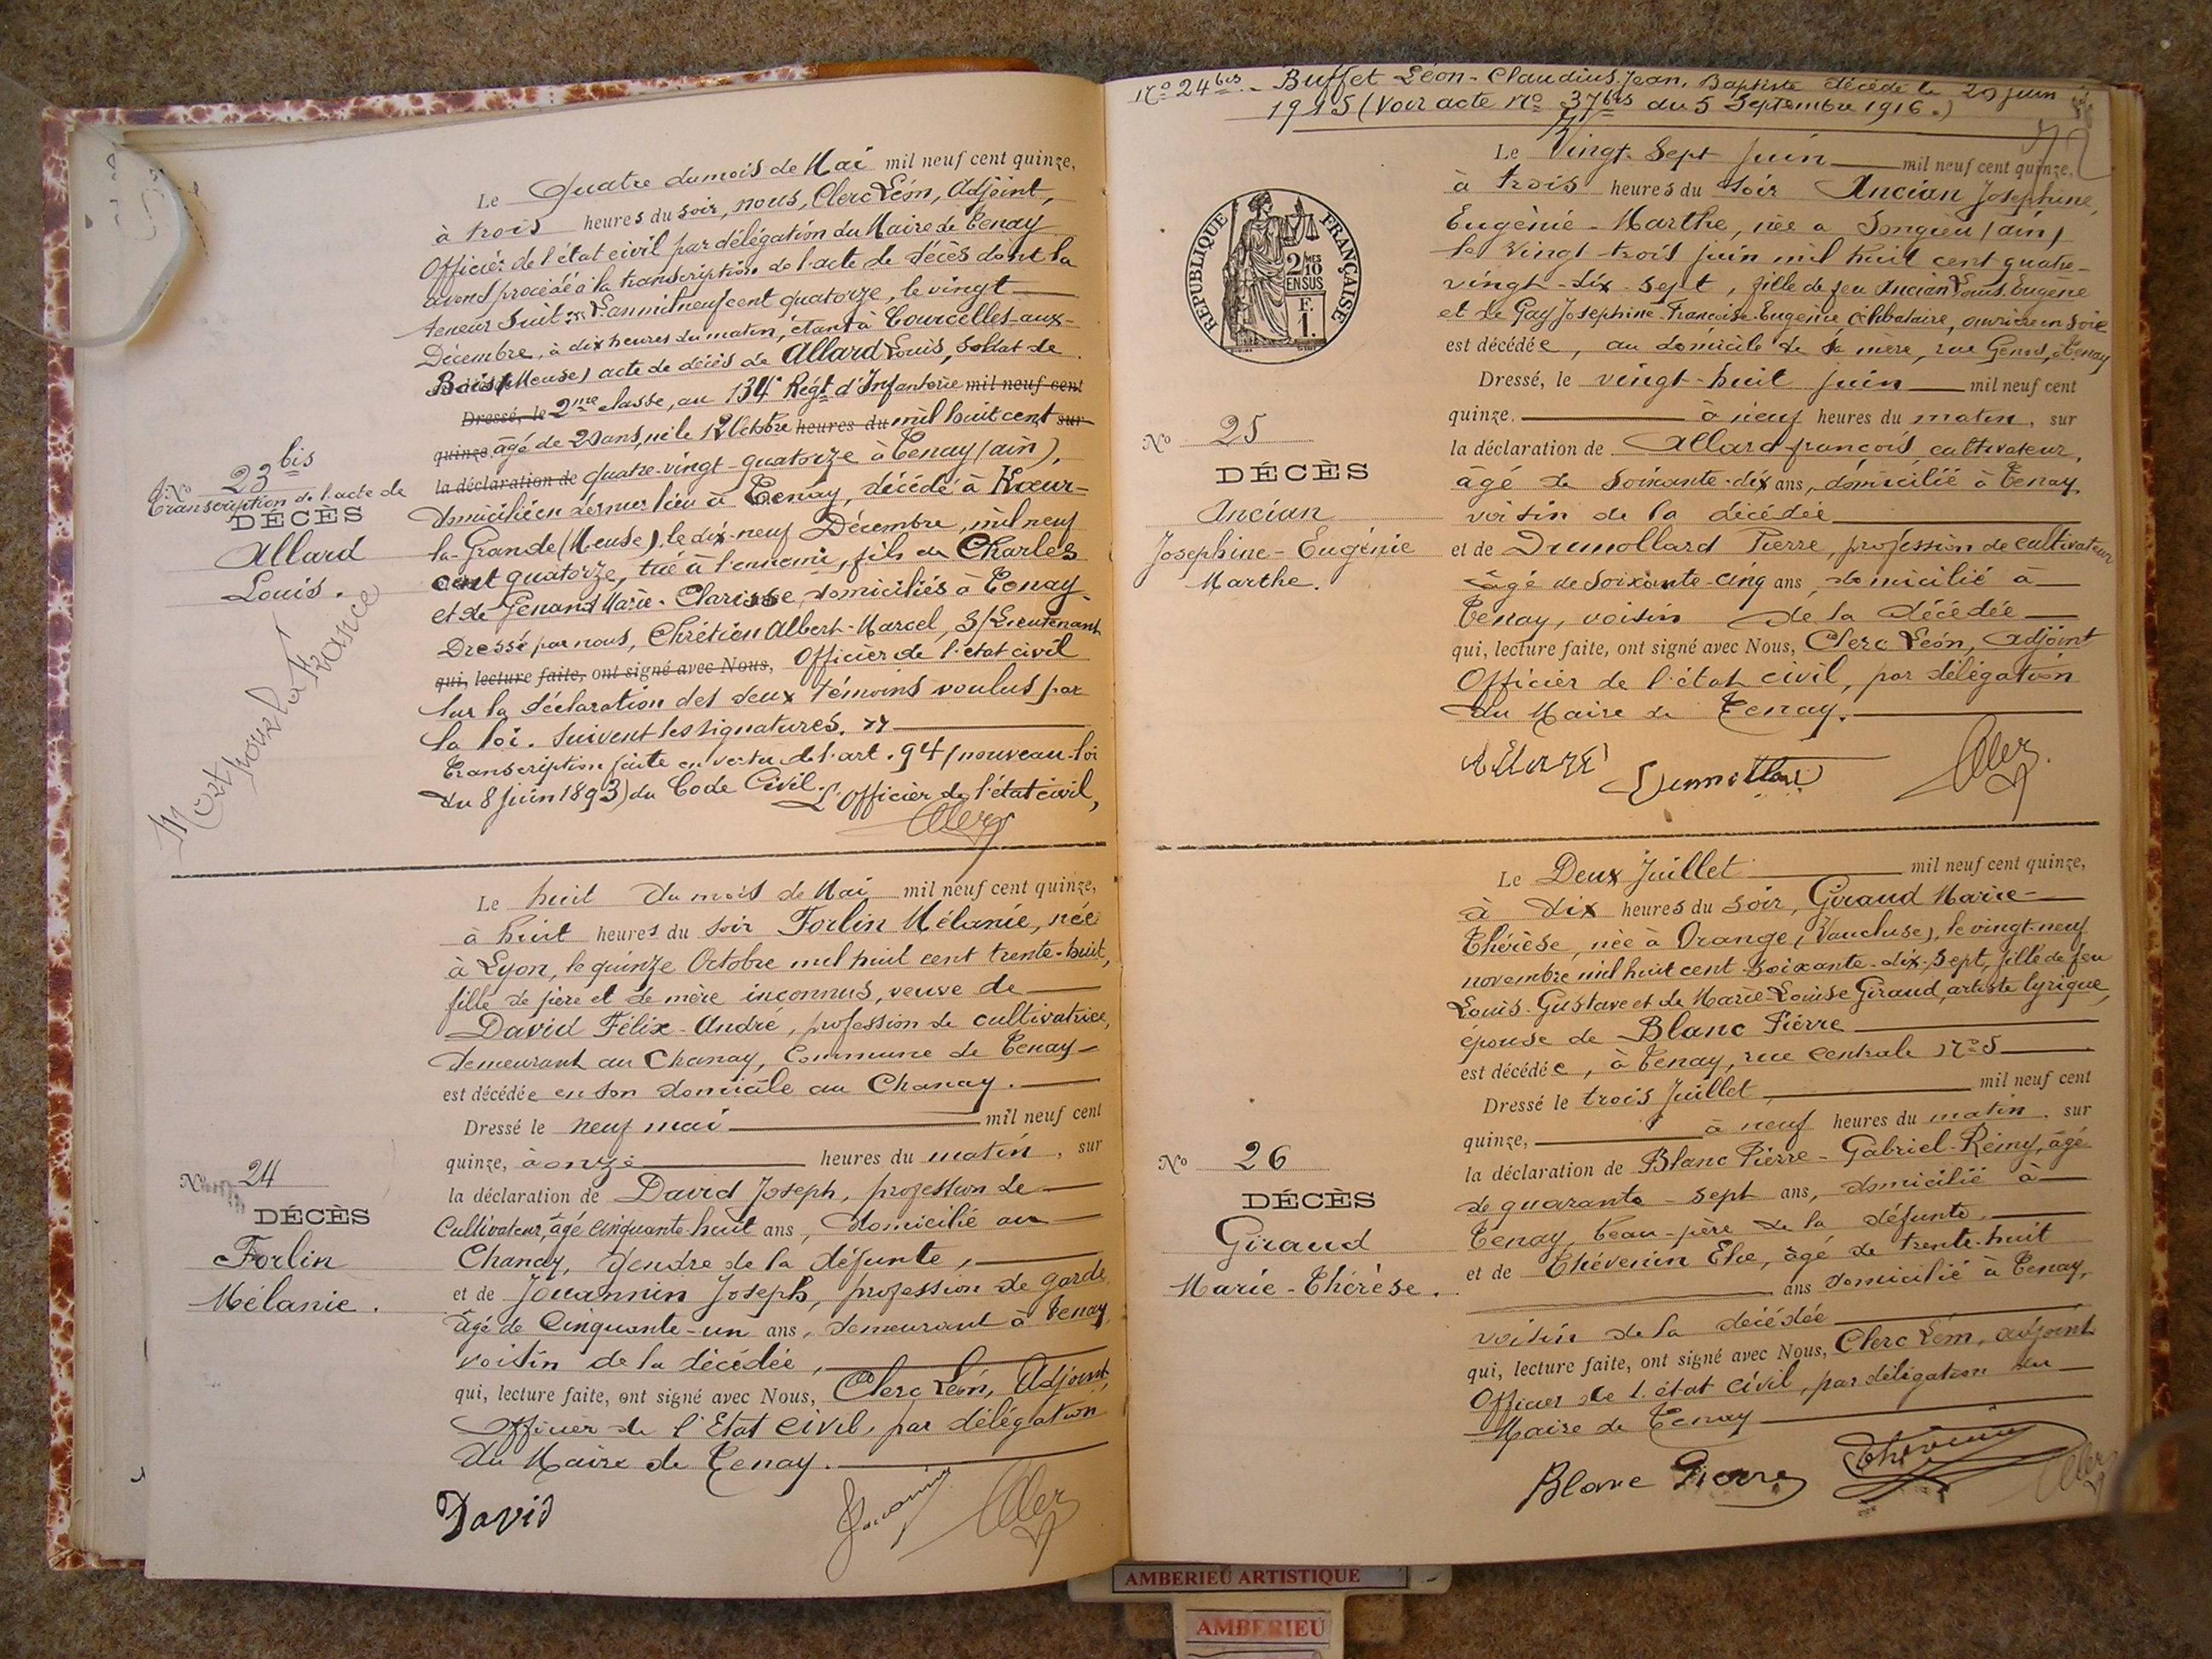 Le Quatre du mois de Mai mil neuf cent quinze,
à trois heures du soir, nous, Clerc Léon, Adjoint,
Officier de l'état civil par délégation du Maire de Tenay
avons procédé à la transcription de l'acte de décès dont la
teneur suit : L'an mil neuf cent quatorze, le vingt
Décembre, à dix heures du matin, étant à Courcelles-aux-
Bois (Meuse) acte de décès de Allard Louis, soldat de
Dressé, le 2me classe, au 134e Régt d'Infanterie mil neuf cent
quinze âgé de 20 ans, né le 12 Octobre heures du mil huit cent sur
la déclaration de quatre-vingt-quatorze à Tenay (ain),
domicilié en dernier lieu à Tenay, décédé à Kœur-
la-Grande (Meuse), le dix-neuf Décembre, mil neuf
cent quatorze, tué à l'ennemi, fils de Charles
et de Genand Marie-Clarisse, domiciliés à Tenay.
Dressé par nous, Chrétien Albert-Marcel, S/Lieutenant
qui, lecture faite, ont signé avec Nous, Officier de l'état civil
sur la déclaration des deux témoins voulus par
la loi. Suivent les signatures.
Transcription faite en vertu de l'art. 94 (nouveau-loi
du 8 juin 1893) du Code Civil. L'Officier de l'état civil,
Clerc
No 23 bis
Transcription de l'acte de
DÉCÈS
Allard
Louis.
Mort pour la France
Le huit du mois de Mai mil neuf cent quinze,
à huit heures du soir Forlin Mélanie, née
à Lyon, le quinze Octobre mil huit cent trente-huit,
fille de père et de mère inconnus, veuve de
David Félix-André, profession de cultivatrice,
demeurant au Chanay, Commune de Tenay
est décédée en son domicile au Chanay.
Dressé le neuf mai mil neuf cent
quinze, à onze heures du matin, sur
la déclaration de David Joseph, profession de
Cultivateur, âgé cinquante-huit ans, domicilié au
Chanay, gendre de la défunte,
et de Jouannin Joseph, profession de garde,
âgé de Cinquante-un ans, demeurant à Tenay,
voisin de la décédée,
qui, lecture faite, ont signé avec Nous, Clerc Léon, Adjoint,
Officier de l'Etat civil, par délégation
du Maire de Tenay.
David Jouannin Clerc
No 24
DÉCÈS
Forlin
Mélanie.
No 24 bis. - Buffet Léon-Claudius, Jean, Baptiste décédé le 20 juin
1915 (Voir acte No 37 bis du 5 Septembre 1916.)
RÉPUBLIQUE FRANÇAISE
2/10MES
EN SUS
F.
1.
Le Vingt-Sept Juin mil neuf cent quinze,
à trois heures du soir Ancian Josephine,
Eugènie-Marthe, née à Songieu (ain)
le Vingt-trois juin mil huit cent quatre-
vingt-dix-sept, fille de feu Ancian Louis Eugène
et de Gay Joséphine-Françoise-Eugénie célibataire, ouvrière en soie
est décédée, au domicile de sa mère, rue Genod, à Tenay
Dressé, le vingt-huit juin mil neuf cent
quinze. à neuf heures du matin, sur
la déclaration de Allard françois cultivateur,
âgé de Soixante-dix ans, domicilié à Tenay,
voisin de la décédée
et de Dumollard Pierre, profession de cultivateur
âgé de Soixante-cinq ans, domicilié à
Tenay, voisin de la décédée
qui, lecture faite, ont signé avec Nous, Clerc Léon, adjoint
Officier de l'état civil, par délégation
du Maire de Tenay.
Dumollard Clerc
No 25
DÉCÈS
Ancian
Josephine-Eugénie
Marthe.
Le Deux Juillet mil neuf cent quinze,
à dix heures du soir, Giraud Marie-
Thérèse, née à Orange, (Vaucluse), le vingt-neuf
novembre mil huit cent soixante-dix-sept, fille de feu
Louis-Gustave et de Marie-Louise Giraud, artiste lyrique,
épouse de Blanc Pierre
est décédée, à Tenay, rue centrale No 5
Dressé le trois Juillet, mil neuf cent
quinze, à neuf heures du matin, sur
la déclaration de Blanc Pierre-Gabriel-Rémy, âgé
de quarante-sept ans, domicilié à
Tenay, beau-père de la défunte,
et de Thévenin Elie, âgé de trente-huit
ans domicilié à Tenay,
voisin de la décédée
qui, lecture faite, ont signé avec Nous, Clerc Léon, adjoint
Officier de l'état civil, par délégation du
Maire de Tenay
Blanc Pierre Thévenin Clerc
No 26
DÉCÈS
Giraud
Marie-Thérèse.
AMBERIEU ARTISTIQUE
AMBERIEU